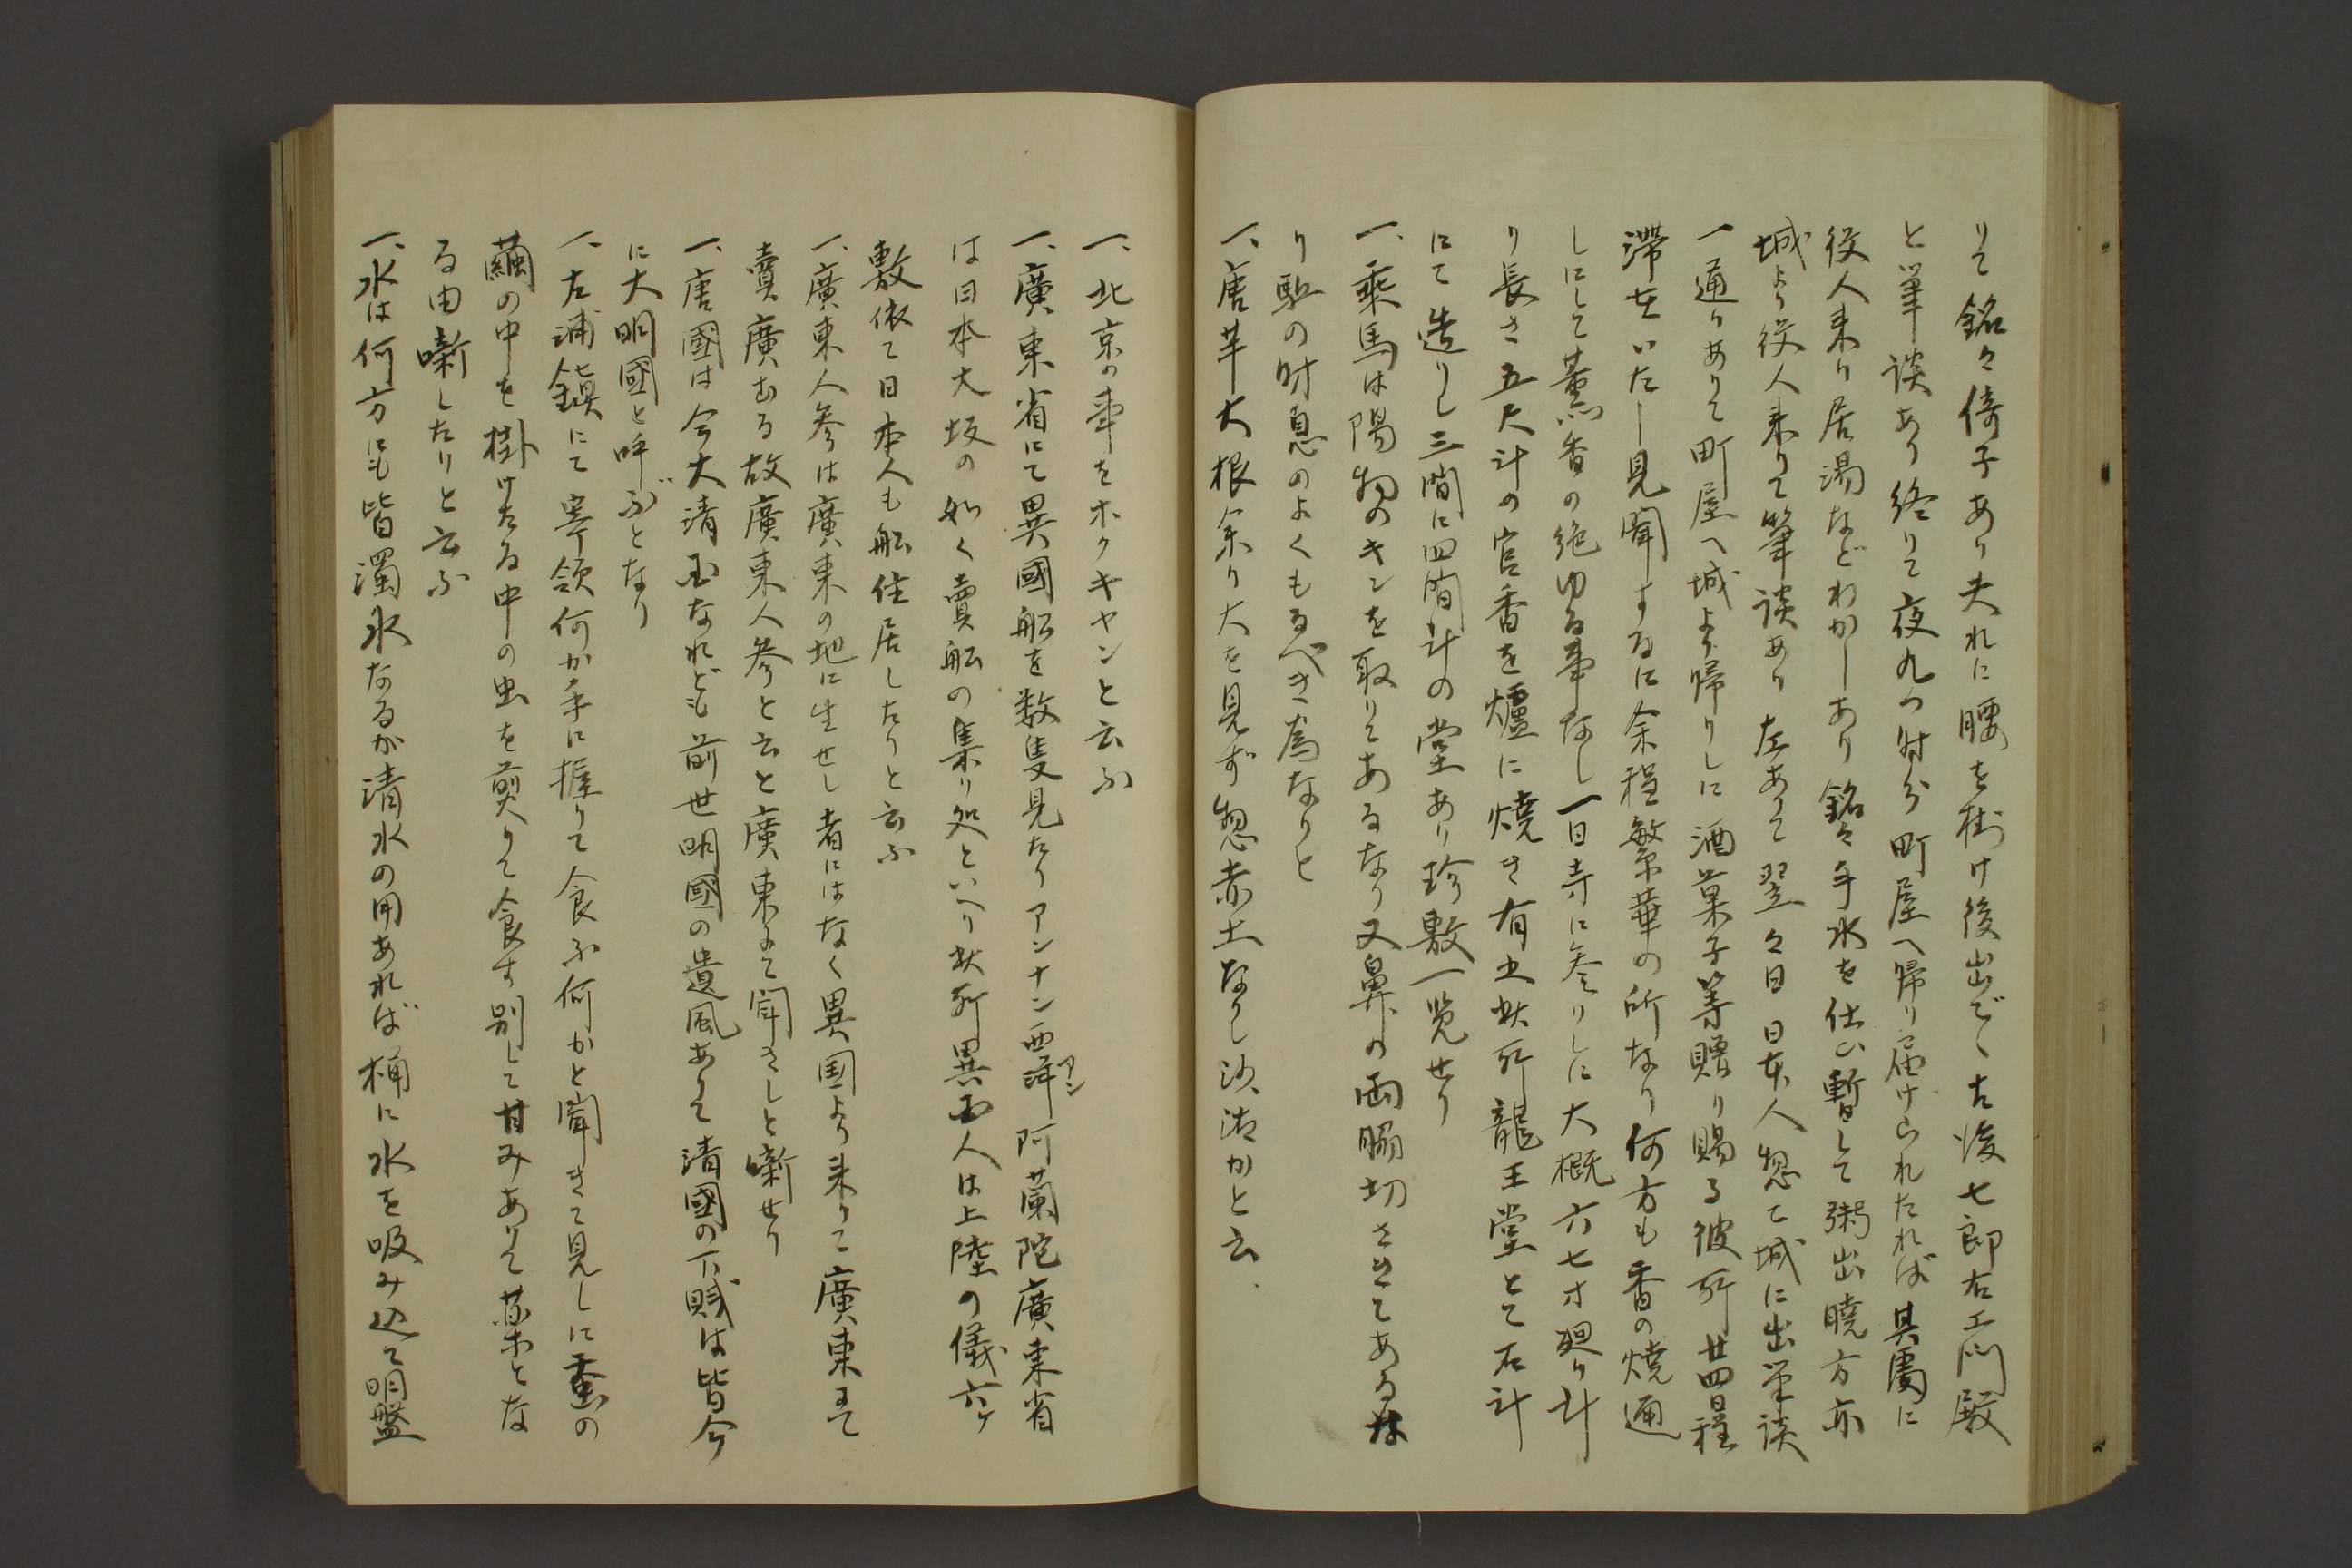 りて銘々倚子あり夫れに腰を掛け後出で、古後七郎右エ門殿
と筆談あり終りて夜九つ時分町屋へ帰り届けられたれば其處に
役人来り居湯などわかしあり銘々手水を仕ひ暫して粥出暁方亦
城より役人来りて筆談あり左ありて翌々日日本人惣て城に出筆談
一通りありて町屋へ城より帰りしに酒菓子等贈り賜る彼所廿四日程
滞在いたし見聞するに余程繁華の所なり何方も香の焼通
しにして薫香の絶ゆる事なし一日寺に参りしに大概六七寸廻り計
り長さ五尺計の官香を爐に焼き有之此所龍王堂とて石計
にて造りし三間に四間計の堂あり珍敷一覧せり
一、乗馬は陽物のキンを取りてあるなり又鼻の両脇切さきてあるな
り駈の時息のよくもるべき為なりと
一、唐芋大根余り大を見ず惣赤土なりし故かと云
一、北京の事をホクキヤンと云ふ
一、廣東省にて異國船を数隻見たりアンナン西洋アン阿蘭陀廣東省
は日本大坂の如く賣船の集り処といへり此所異国人は上陸の儀六ケ
敷依て日本人も船住居したりと云ふ
一、廣東人参は廣東の地に生せし者にはなく異国より来りて廣東にて
賣廣むる故廣東人参と云と廣東にて聞きしと噺せり
一、唐國は今大清国なれども前世明國の遺風ありて清國の下賎は皆今
に大明國と呼ぶとなり
一、左浦鎮にて宰領何か手に握りて食ふ何かと聞きて見しに蚕の
繭の中を掛けたる中の虫を煎りて食す別して甘みありて薬とな
る由噺したりと云ふ
一、水は何方にも皆濁水なるが清水の用あれば桶に水を吸み込て明盤